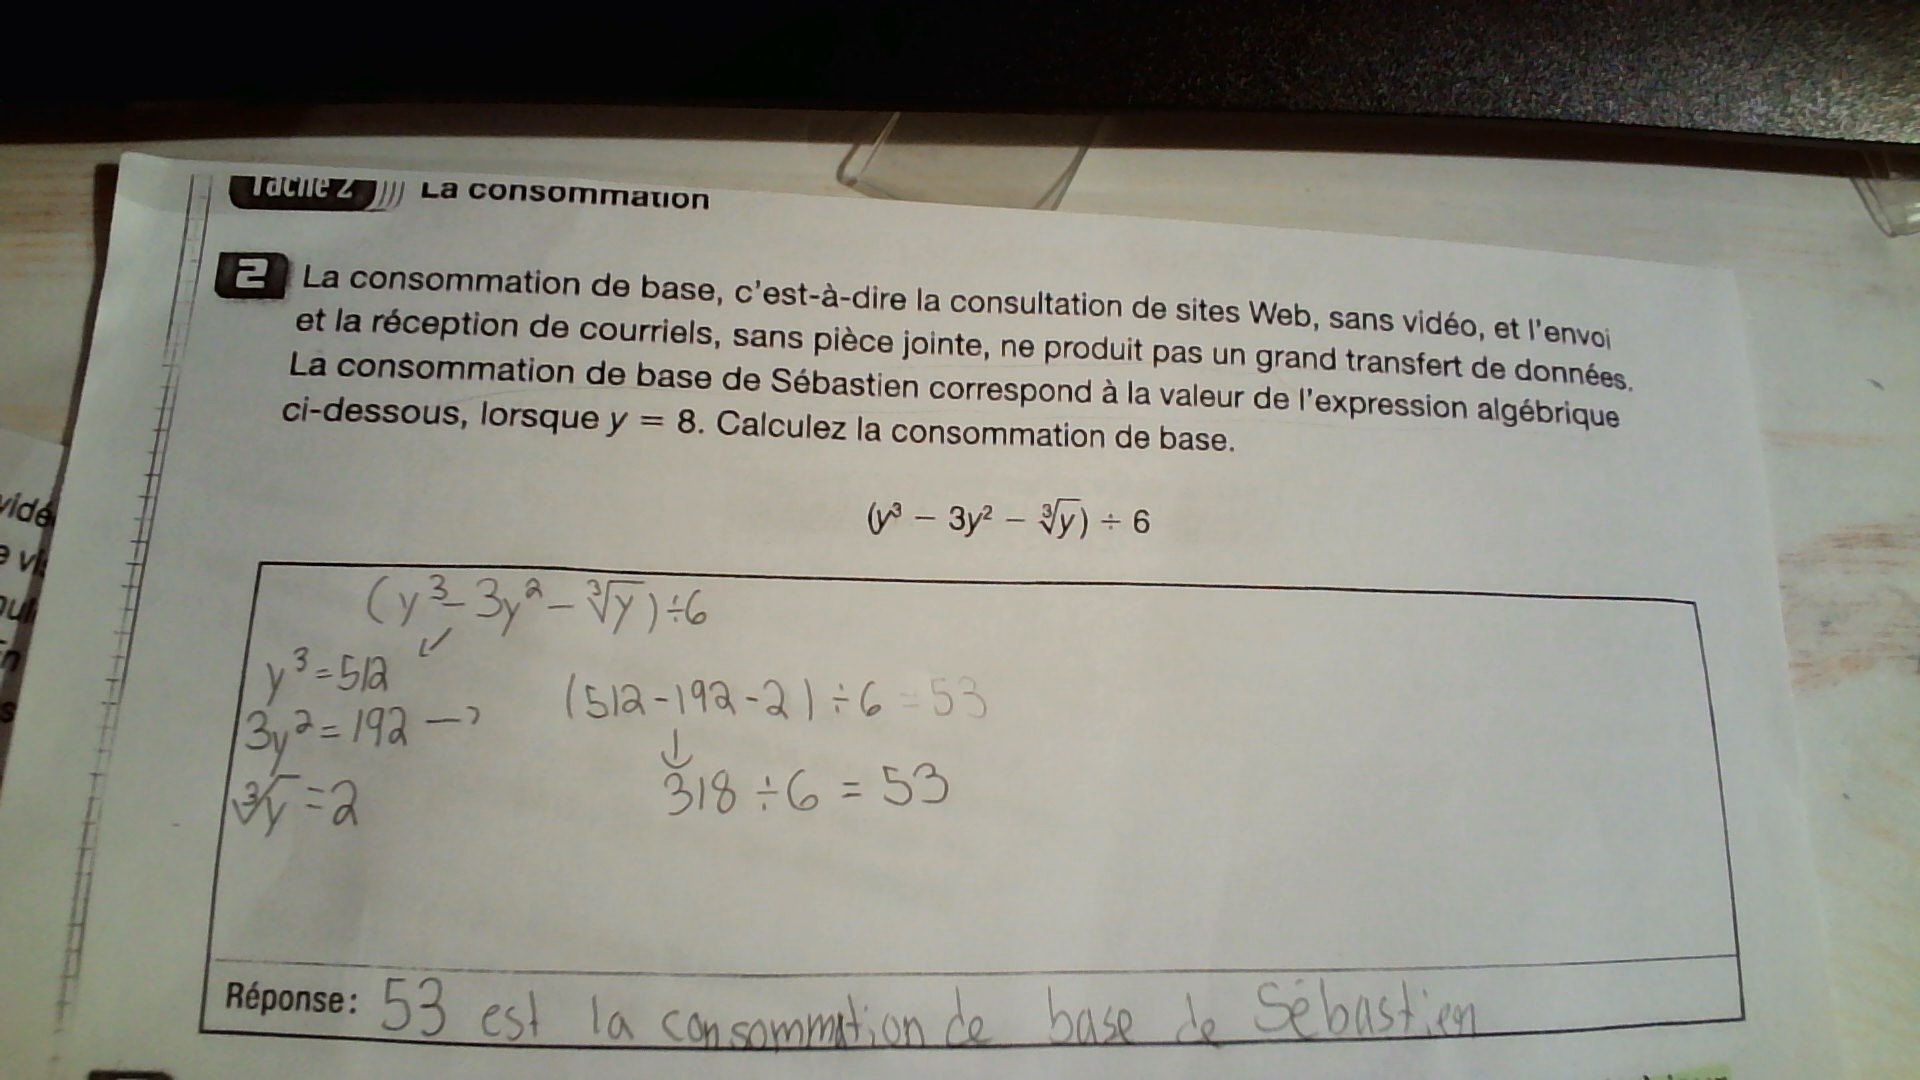 Tâche 2 ))) La consommation
2 La consommation de base, c'est-à-dire la consultation de sites Web, sans vidéo, et l'envoi
et la réception de courriels, sans pièce jointe, ne produit pas un grand transfert de données.
La consommation de base de Sébastien correspond à la valeur de l'expression algébrique
ci-dessous, lorsque y = 8. Calculez la consommation de base.
(y³ – 3y² – ∛y) ÷ 6
(y³ - 3y² - ∛y) ÷ 6
y³ = 512
3y² = 192 →
∛y = 2
(512 - 192 - 2) ÷ 6 = 53
↓
318 ÷ 6 = 53
Réponse: 53 est la consommation de base de Sébastien